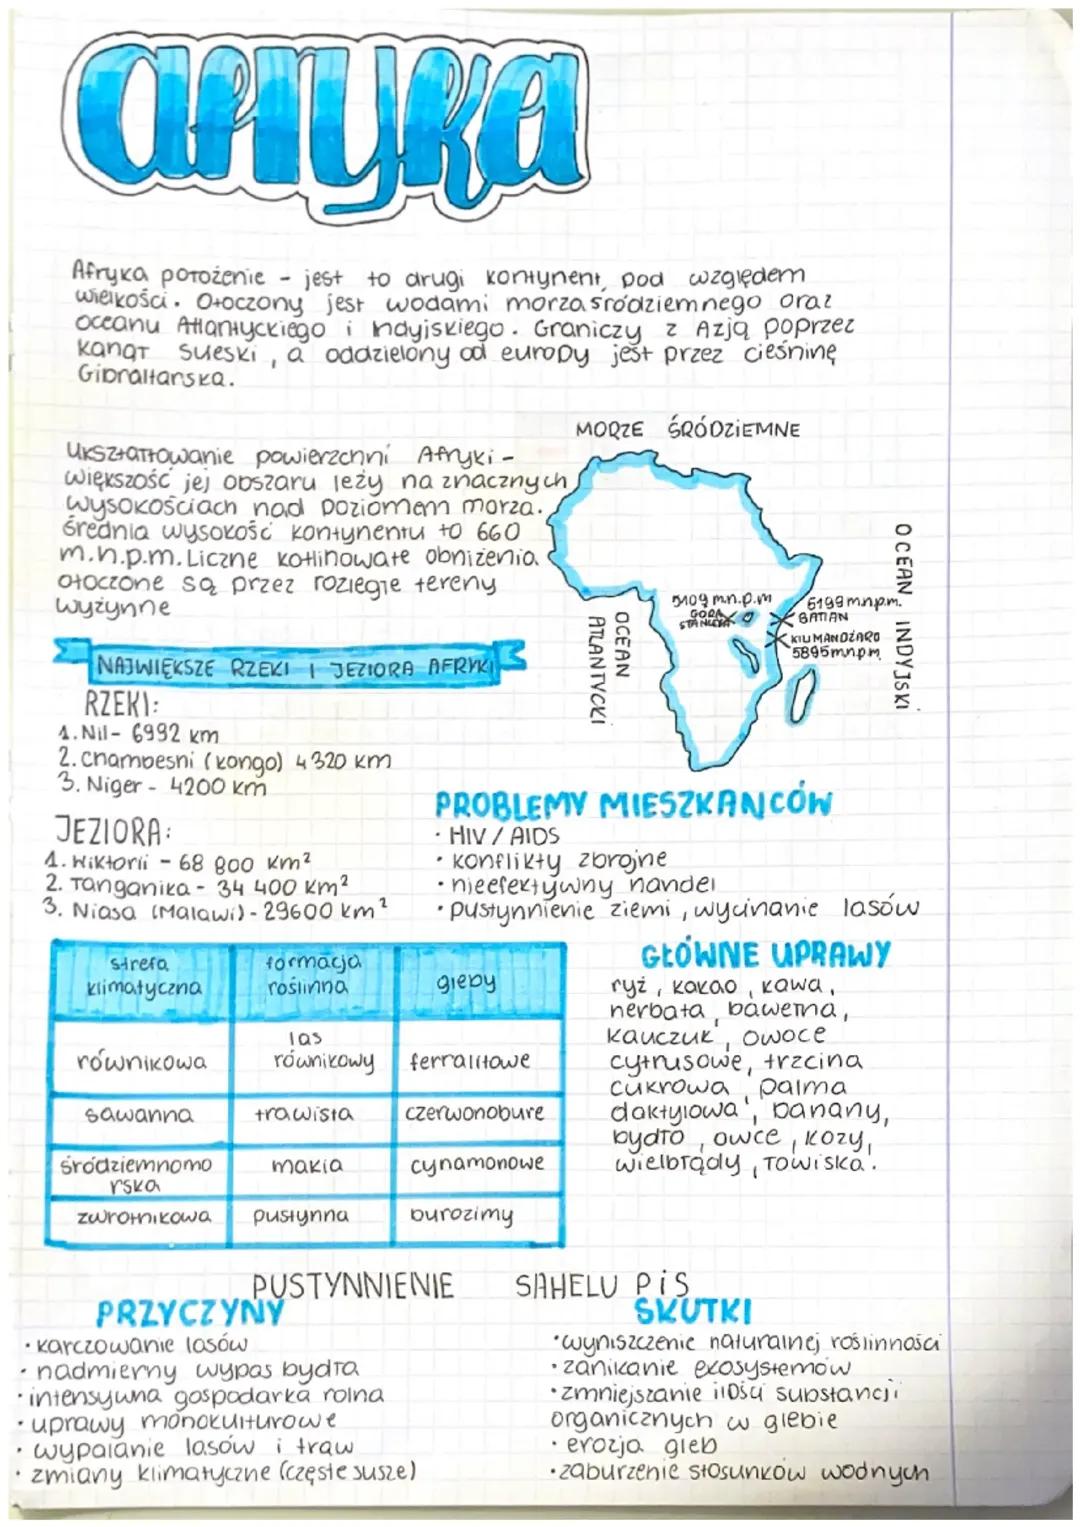 afryka
Afryka położenie - jest to drugi kontynent pod względem
wielkości. Otoczony jest wodami morza śródziemnego oraz
oceanu Atlantyckiego i Indyjskiego. Graniczy z Azją poprzez
kanał Sueski, a oddzielony od europy jest przez cieśninę
Gibraltarska.
MORZE ŚRÓDZIEMNE
Ukształtowanie powierzchni Afryki -
większość jej obszaru leży na znacznych
wysokościach nad poziomem morza.
średnia wysokość kontynentu to 660
m.n.p.m. Liczne kotlinowate obniżenia
otoczone są przez rozległe tereny
wyżynne
OCEAN ATLANTYCKI
OCEAN INDYJSKI
5109 m.n.p.m
GÓRA
STANLEYA
6199 m.n.p.m.
BATIAN
KILIMANDŻARO
5895 m.n.p.m
NAJWIĘKSZE RZEKI I JEZIORA AFRYKI
RZEKI:
1. Nil - 6992 km
2. Chambesni (kongo) 4320 km
3. Niger - 4200 km
JEZIORA:
1. Wiktorii - 68 800 km²
2. Tanganika - 34 400 km²
3. Niasa (Malawi) - 29600 km²
PROBLEMY MIESZKAŃCÓW
· HIV / AIDS
· konflikty zbrojne
· nieefektywny handel
· pustynnienie ziemi, wycinanie lasów
strefa klimatyczna
formacja roślinna
gleby
równikowa
las równikowy
ferralitowe
sawanna
trawista
czerwonobure
śródziemnomo
rska
makia
cynamonowe
zwrotnikowa
pustynna
burozimy
GŁÓWNE UPRAWY
ryż, kakao, kawa,
herbata, bawełna,
kauczuk, owoce
cytrusowe, trzcina
cukrowa, palma
daktylowa, banany,
bydło, owce, kozy,
wielbłądy, łowiska.
PUSTYNNIENIE SAHELU PiS
PRZYCZYNY
· karczowanie lasów
· nadmierny wypas bydła
· intensywna gospodarka rolna
· uprawy monokulturowe
· wypalanie lasów i traw
· zmiany klimatyczne (częste susze)
SKUTKI
· wyniszczenie naturalnej roślinności
· zanikanie ekosystemów
· zmniejszanie ilości substancji
organicznych w glebie
· erozja gleb
· zaburzenie stosunków wodnych